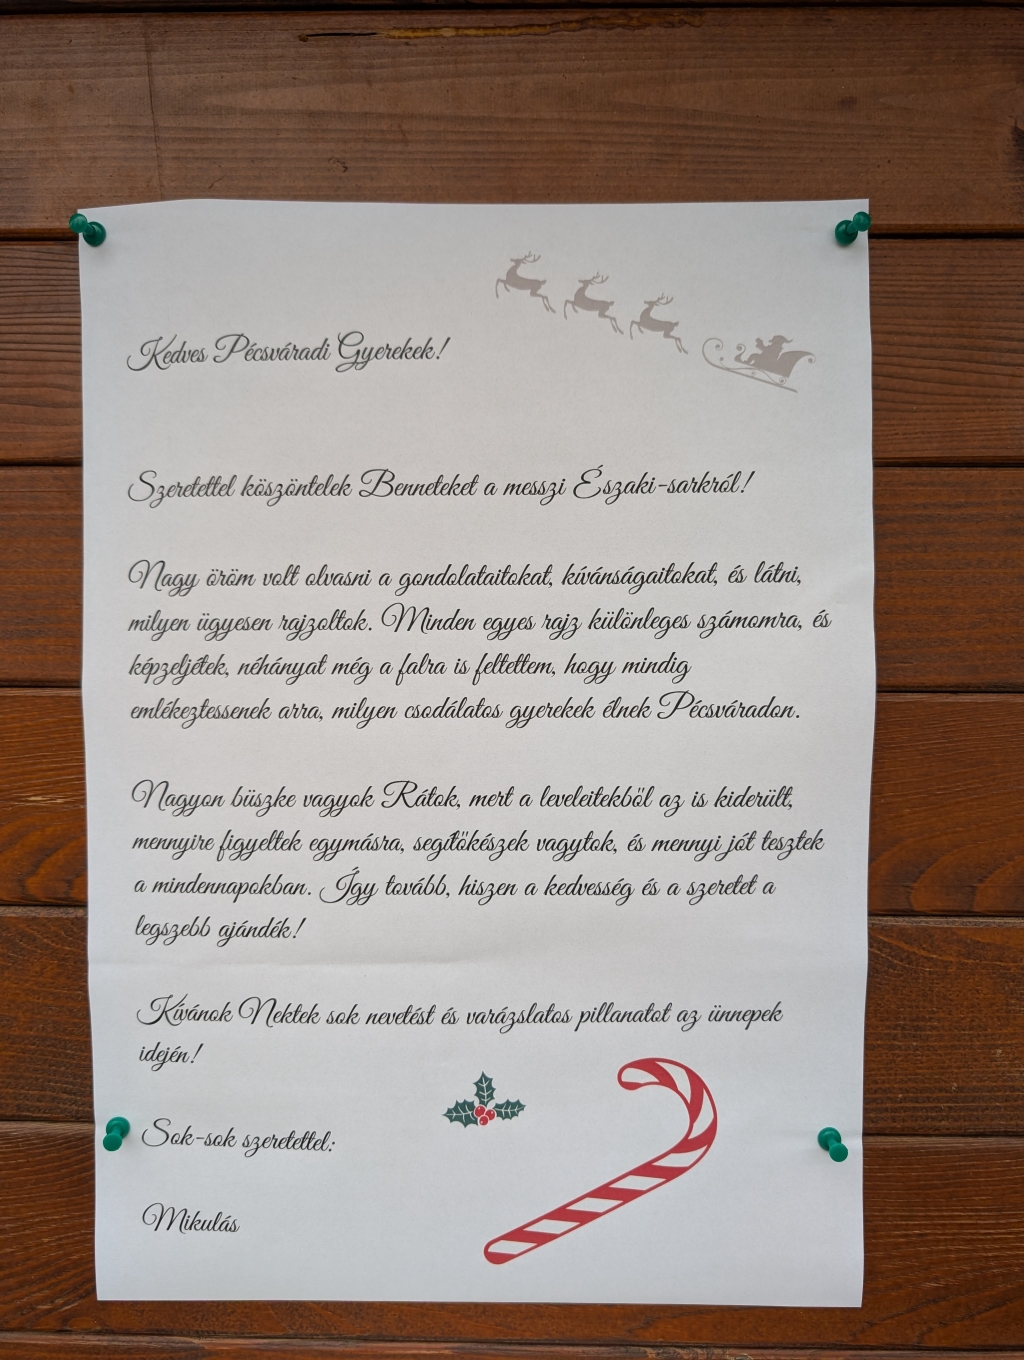 Kedves Pécsváradi Gyerekek!
Szeretettel köszöntelek Benneteket a messzi Északi-sarkról!
Nagy öröm volt olvasni a gondolataitokat, kívánságaitokat, és látni,
milyen ügyesen rajzoltok. Minden egyes rajz különleges számomra, és
képzeljétek, néhányat még a falra is feltettem, hogy mindig
emlékeztessenek arra, milyen csodálatos gyerekek élnek Pécsváradon.
Nagyon büszke vagyok Rátok, mert a leveleitekből az is kiderült,
mennyire figyeltek egymásra, segítőkészek vagytok, és mennyi jót tesztek
a mindennapokban. Így tovább, hiszen a kedvesség és a szeretet a
legszebb ajándék!
Kívánok Nektek sok nevetést és varázslatos pillanatot az ünnepek
idején!
Sok-sok szeretettel:
Mikulás